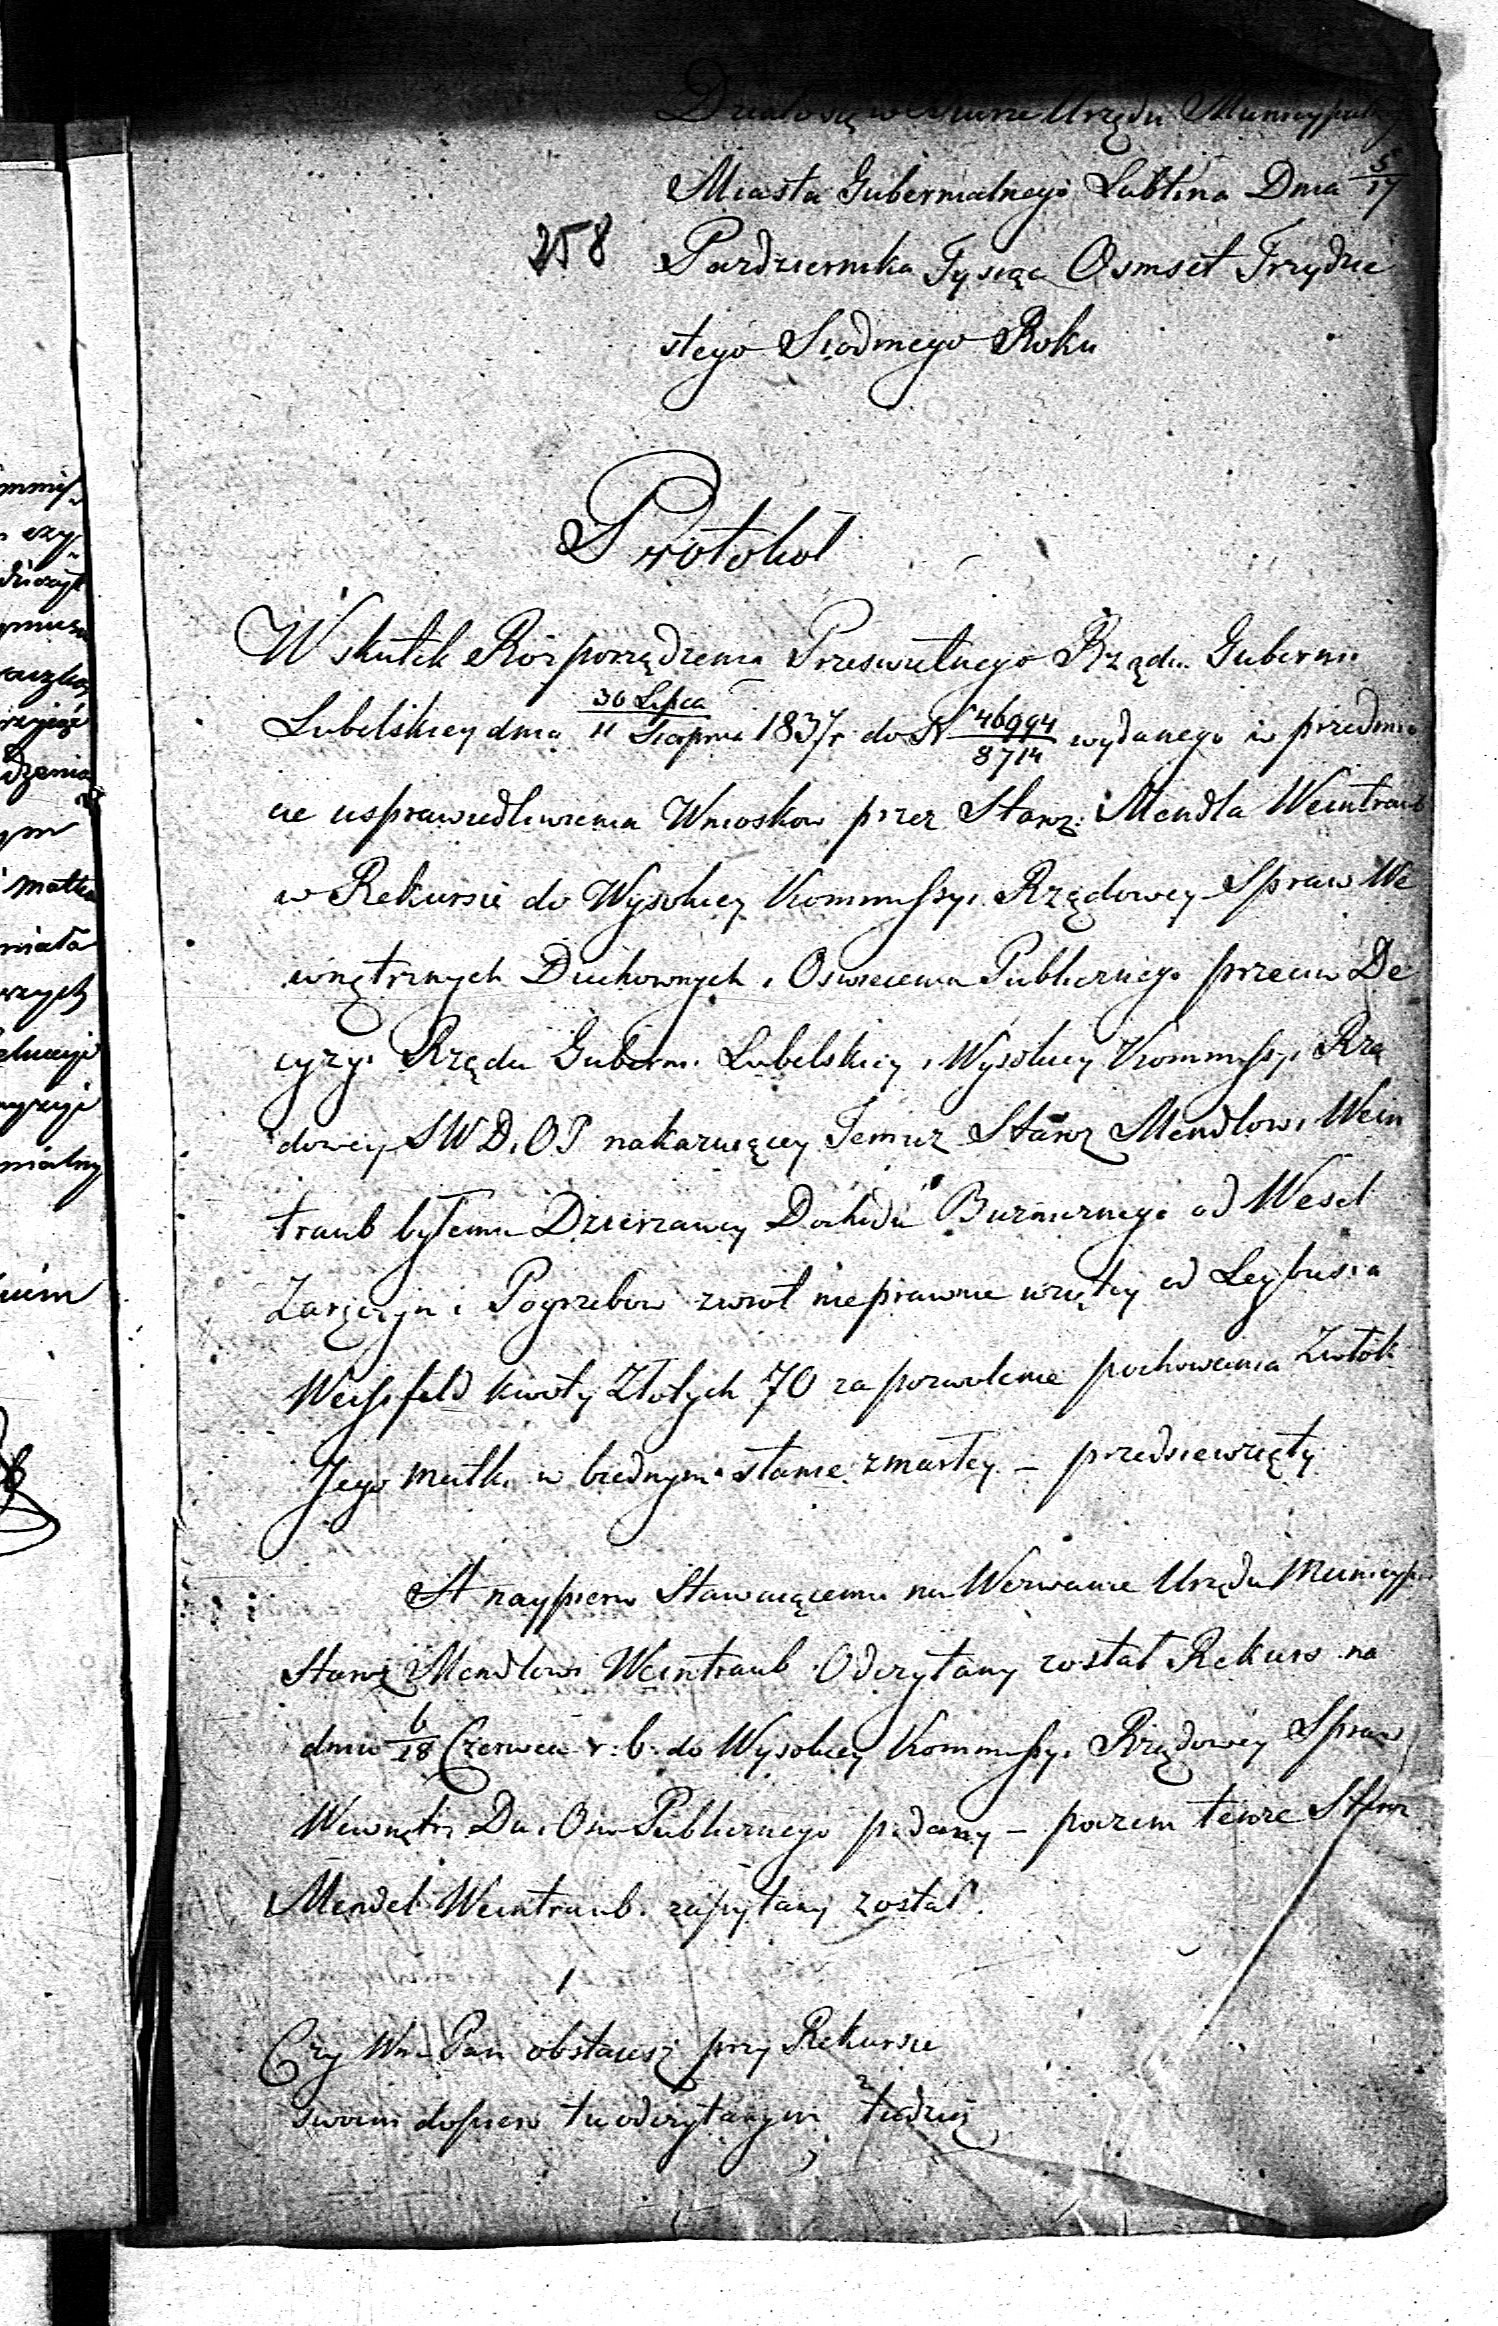 Działo się w Biurze Urzędu Municypaln
Miasta Gubernialnego Lublina Dnia 5/17
258
Pazdziernika Tysiąc Osmset Trzydzie
stego Siodmego Roku
Protokoł
W skutek Rozporządzenia Prześwietnego Rządu Gubernii
Lubelskiey dnia 30 Lipca/11 Sierpnia 1837 r do N 46994/8714 wydanego w przedmio
cie usprawiedliwienia Wnioskow przez Starz: Mendla Weintraub
w Rekursie do Wysokiey Kommissyi Rządowey Spraw We
wnętrznych Duchownych i Oswiecenia Publicznego przeciw De
cyzyi Rządu Guberni Lubelskiey i Wysokiey Kommissyi Rzą
dowey S W D i O P nakazuiącey Temuz Starz Mendlowi Wein
traub byłemu Dzierzawcy Dochodu Buznicznego od Wesel
Zaręczyn i Pogrzebow zwrot nieprawnie wziętey od Leybusia
Weissfeld kwoty Złotych 70 za pozwolenie pochowania Zwłok
Jego matki w biednym stanie zmarłey – przedsiewzięty
A naypierw Stawaiącemu na Wezwanie Urzędu Municyp
Starz Mendlowi Weintraub Odczytany został Rekurs na
dniu 6/18 Czerwca r: b: do Wysokiey Kommissyi Rządowey Spraw
Wewnętr Du i Osw Publicznego podany – poczem tenze Starz
Mendel Weintraub zapytany został.
1
Czy Wn Pan obstaiesz przy Rekursie
swoim dopiero tu odczytanym